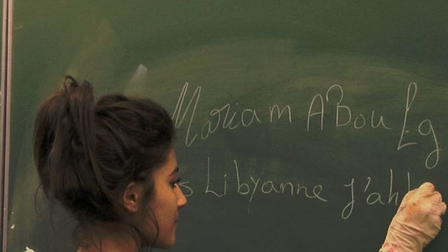 Mariam Abou Lg
s Libyanne j'ah